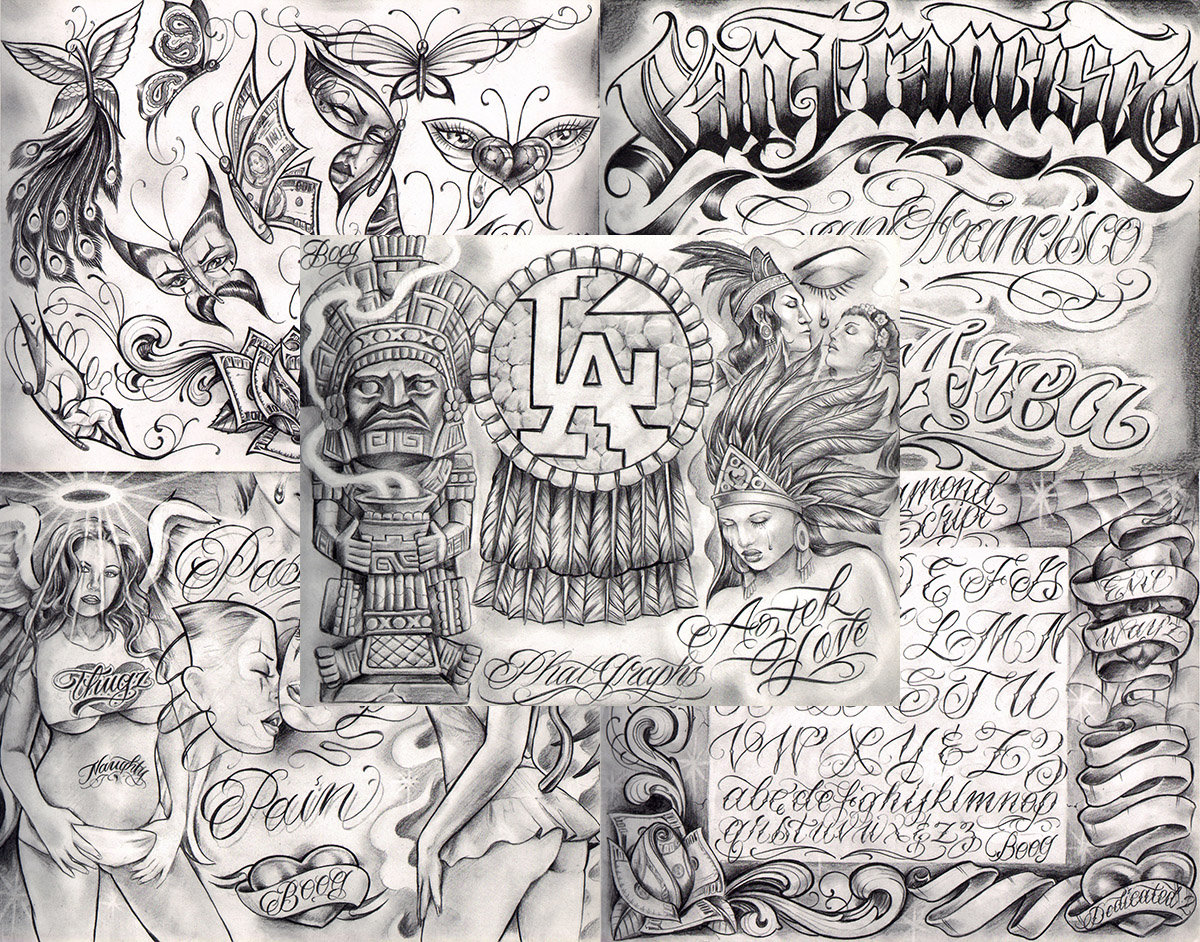 San Francisco
San Francisco
Area
Boog
LA
Phat Graphs
Aztek
Love
Thugz
Naughty
Pain
Boog
Script
E F G
L M N
S T U
V W X Y & Z
abcdefghijklmnop
qrstuvwxyz
Boog
Evil
Wayz
Dedicated